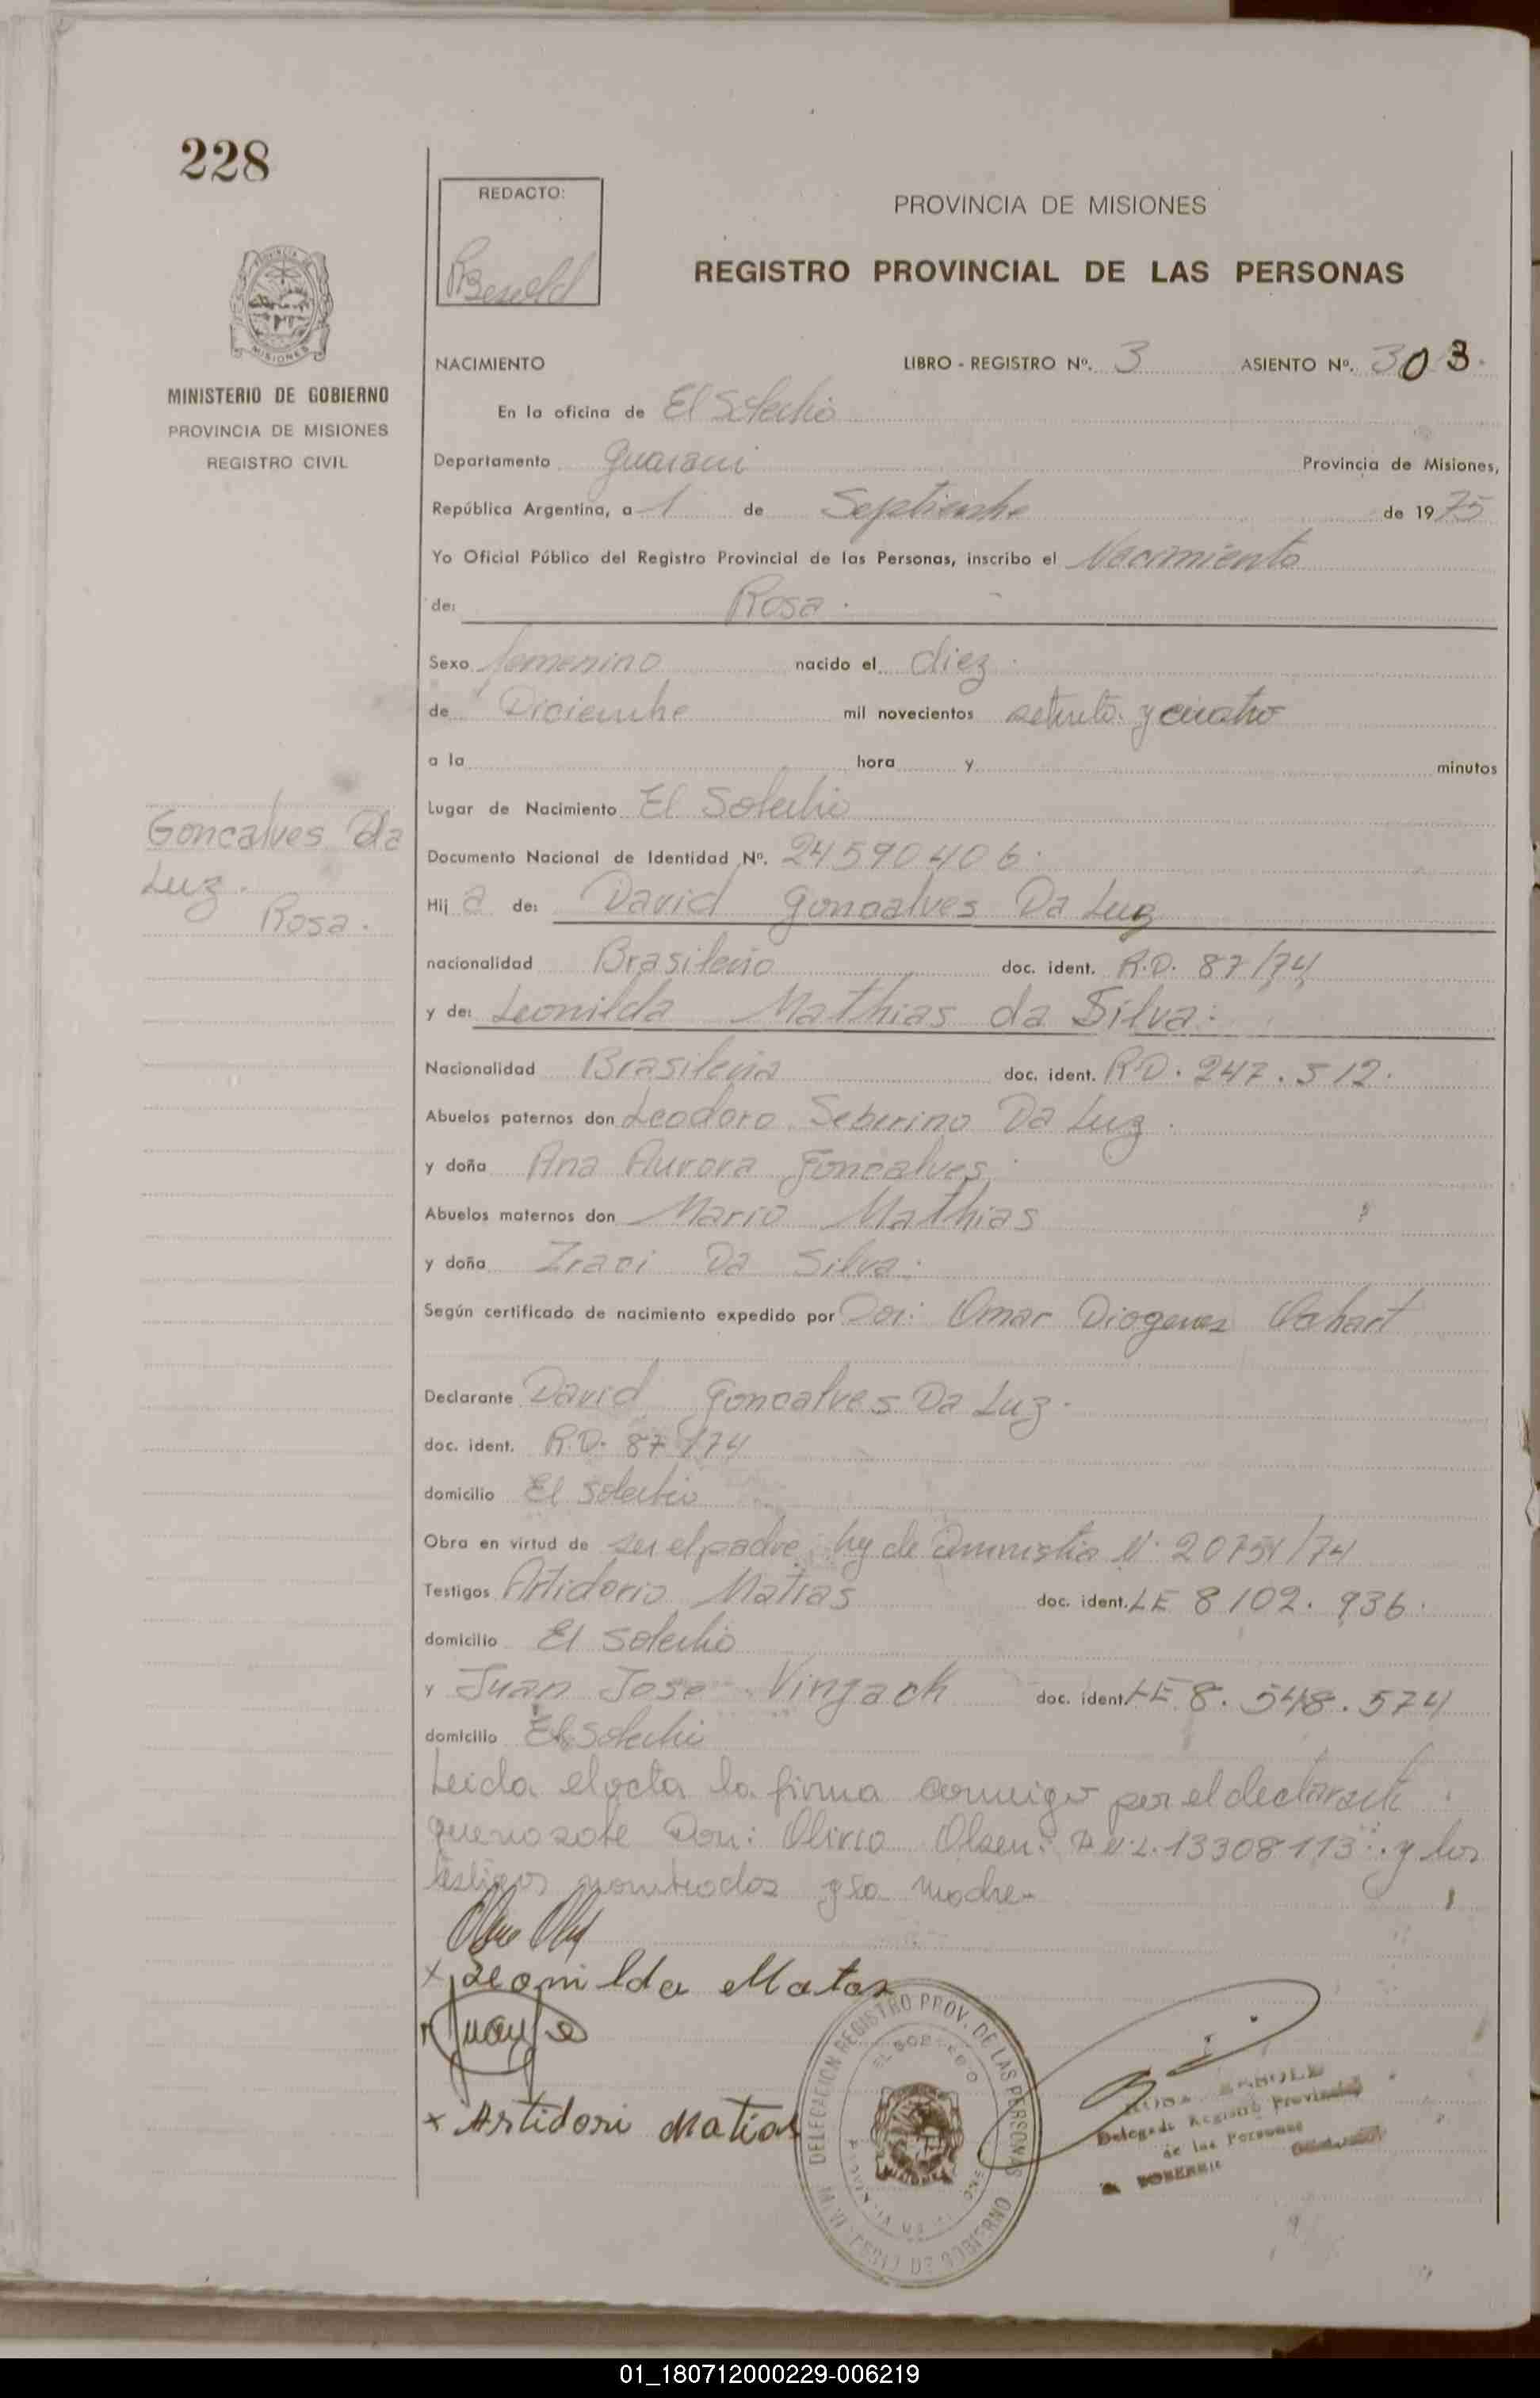 228
REDACTO:
PROVINCIA DE MISIONES
REGISTRO PROVINCIAL DE LAS PERSONAS
MINISTERIO DE GOBIERNO
PROVINCIA DE MISIONES
REGISTRO CIVIL
NACIMIENTO LIBRO - REGISTRO Nº. 3 ASIENTO Nº. 303.
En la oficina de El Soberbio
Departamento Guarani Provincia de Misiones,
República Argentina, a 1 de Septiembre de 1975
Yo Oficial Público del Registro Provincial de las Personas, inscribo el Nacimiento
de: Rosa.
Sexo femenino nacido el diez.
de Diciembre mil novecientos setenta y cuatro
a la hora y minutos
Lugar de Nacimiento El Soberbio
Goncalves Da
Luz.
Rosa.
Documento Nacional de Identidad Nº. 24590406.
Hij a de: David Goncalves Da Luz
nacionalidad Brasileño doc. ident. R.D. 87/74
y de: Leonilda Mathias da Silva.
Nacionalidad Brasileña doc. ident. R.D. 247.512.
Abuelos paternos don Leodoro Seberino Da Luz.
y doña Ana Aurora Goncalves.
Abuelos maternos don Mario Mathias
y doña Iraci Da Silva.
Según certificado de nacimiento expedido por Don: Omar Diogenes
Declarante David Goncalves Da Luz.
doc. ident. R.D. 87/74
domicilio El Soberbio
Obra en virtud de ser el padre, ley de amnistia Nº 20751/74
Testigos Artidorio Matias doc. ident. LE 8102.936.
domicilio El Soberbio
y Juan Jose Vinjack doc. ident. LE 8.548.574
domicilio El Soberbio
Leida el acta la firma conmigo por el declarante
que no sabe Don: Olivio Olsen. 13308113 y los
testigos nombrados y la madre.
x Leonilda Matos
x Artidori Matias
DELEGACION REGISTRO PROV. DE LAS PERSONAS
EL SOBERBIO
MISIONES
MINISTERIO DE GOBIERNO
Delegado Registro Provincial
de las Personas
01_180712000229-006219